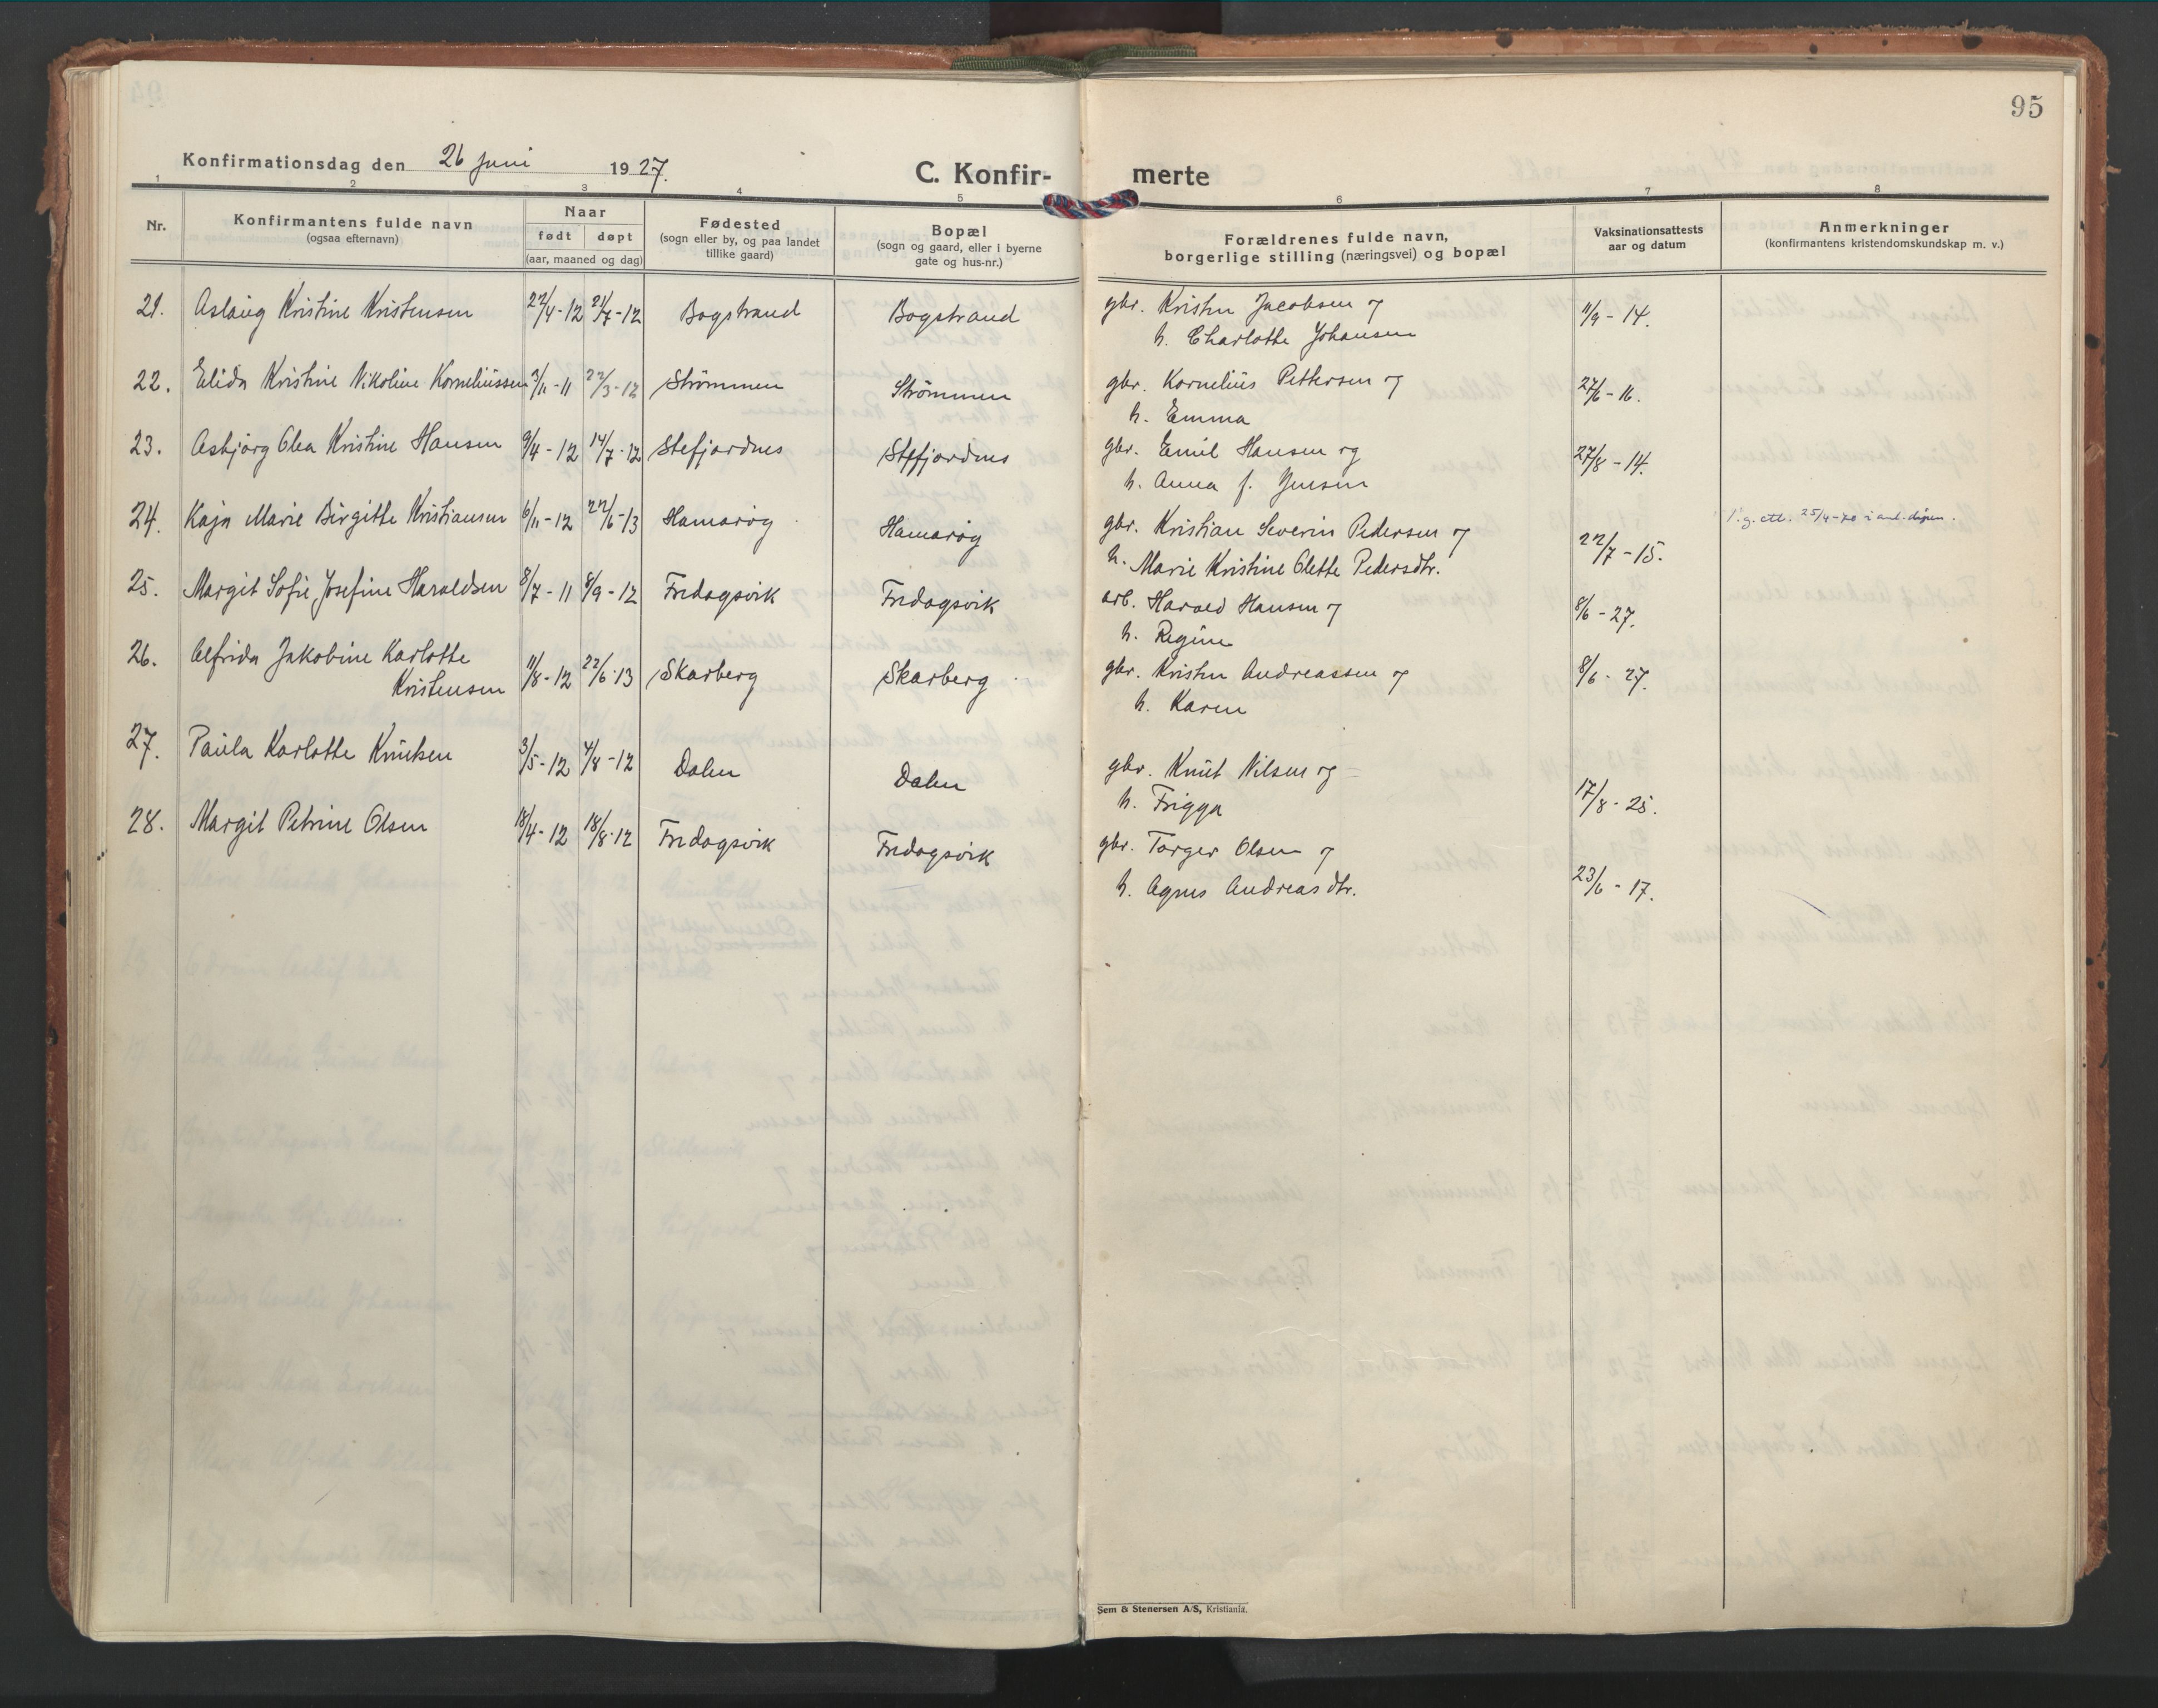 95
Konfirmationsdag den 26 juni 1927.
C. Konfir- merte
1 2 3 4 5 6 7 8
Nr.
Konfirmantens fulde navn
(ogsaa efternavn)
Naar
født døpt
(aar, maaned og dag)
Fødested
(sogn eller by, og paa landet
tillike gaard)
Bopæl
(sogn og gaard, eller i byerne
gate og hus-nr.)
Forældrenes fulde navn,
borgerlige stilling (næringsvei) og bopæl
Vaksinationsattests
aar og datum
Anmerkninger
(konfirmantens kristendomskundskap m. v.)
21. Aslaug Kristine Kristensen 22/4-12 21/7-12 Bogstrand Bogstrand gbr. Kristen Jacobsen og 11/9-14.
h. Charlotte Johansen
22. Elida Kristine Nikoline Korneliussen 3/11-11 22/3-12 Strømmen Strømmen gbr. Kornelius Pettersen og 27/6-16.
h. Emma
23. Asbjørg Olea Kristine Hansen 9/4-12 14/7-12 Stefjordnes Stefjordnes gbr. Emil Hansen og 27/8-14.
h. Anna f. Jensen
24. Kaja Marie Birgitte Kristiansen 6/11-12 22/6-13 Hamarøy Hamarøy gbr. Kristian Severin Pedersen og 22/7-15. 25/4-70
h. Marie Kristine Olette Pedersdtr.
25. Margit Sofie Josefine Haraldsen 8/7-11 8/9-12 Fredagsvik Fredagsvik arb. Harald Hansen og 8/6-27.
h. Regine
26. Alfrida Jakobine Karlotte
Kristensen 11/8-12 22/6-13 Skarberg Skarberg gbr. Kristen Andreassen og 8/6-27.
h. Karen
27. Paula Karlotte Knutsen 3/5-12 4/8-12 Dalen Dalen gbr. Knut Nilsen og
h. Frigga 17/8-25.
28. Margit Petrine Olsen 18/4-12 18/8-12 Fredagsvik Fredagsvik gbr. Torger Olsen og
h. Agnes Andreasdtr. 23/6-17.
Sem & Stenersen A/S, Kristiania.